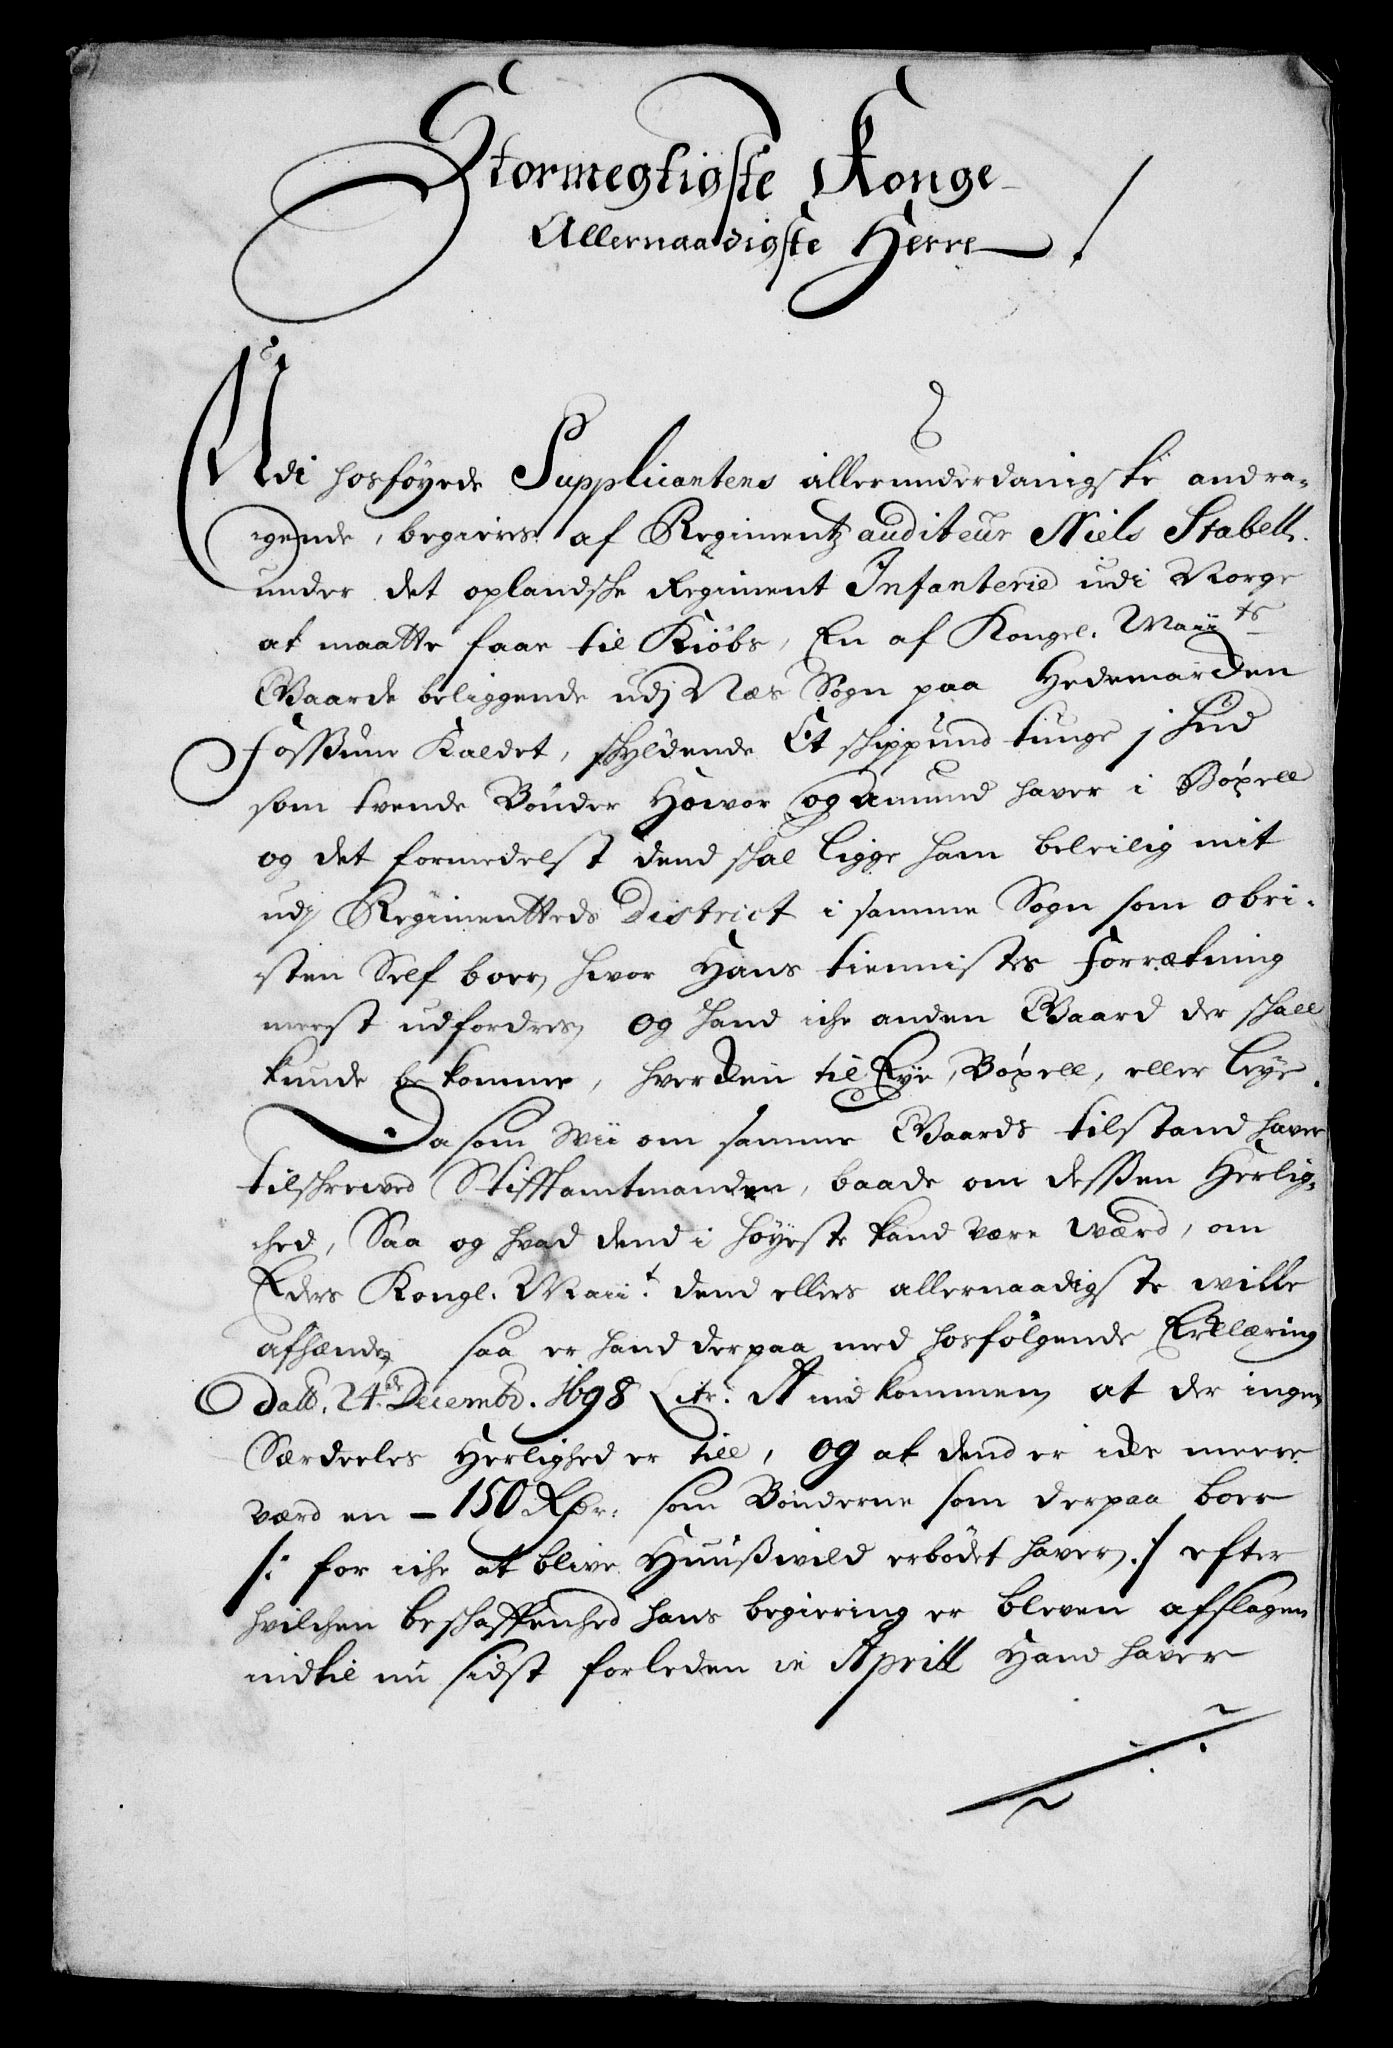 Stormegtigste Konge
Allernaadigste Herre /
Udi hosføyede Supplicantens allerunderdanigste andra-
gende, begieres af Regimentz auditeur Niels Stabell.
under det oplandske Regiment Infanterie udi Norge
at maatte faae til Kiøbs, En af Kongel. Maiits
Gaarde beliggende udj Næs Sogn paa Hedemarden
Fossum Kaldet, skyldende Et schippund tunge j Hud
som tvende Bønder Howor og Amund haver i Bøxell
og det formedelst dend skal ligge ham beleilig mit
udj Regimentteds District i samme Sogn som obri-
sten Self boer, hvor Hans tiennistes Forrætning
meest udfordres, og hand iche anden Gaard der skall
kunde bekomme, hverden til Eye, Bøxell, eller leye.
Da som wii om samme Gaards tilstand haver
tilskrewed Stifftamtmanden, baade om dessen Herlig-
hed, Saa og hvad dend i høyeste kand være værd, om
Eders Kongl. Maiit. dend ellers allernaadigste wille
afhænde, saa er hand derpaa med hosfølgende Erklæring
Datt. 24de Decembr. 1698 Litr. A indkommen, at der ingen
Særdeeles Herlighed er till, og at dend er iche meere
værd en - 150 Rdr. som Bønderne som derpaa boer
/: for iche at blive Huußvild erbødet haver :/ efter
hvilchen beschaffenhed hans begiering er bleven afslagen
indtil nu sidst forleden in Aprill Hand haver